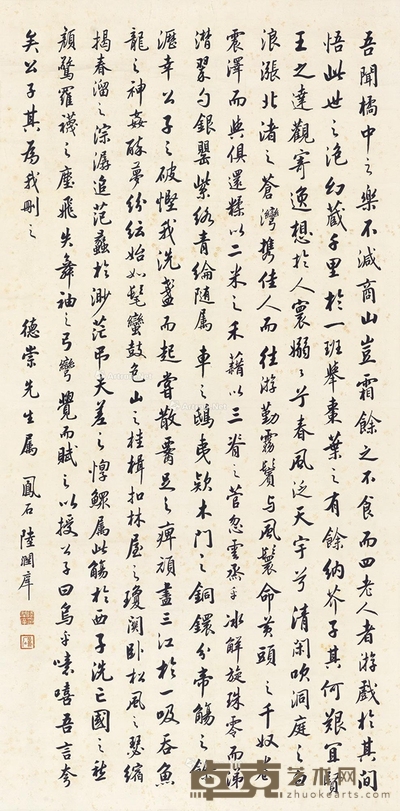 吾聞橘中之樂不減商山豈霜餘之不食而四老人者游戲於其間
悟此世之泡幻藏千里於一班舉棗葉之有餘納芥子其何艱宜賢
王之達觀寄逸想於人寰嫋〻兮春風泛天宇兮清閑吹洞庭之白
浪漲北渚之蒼灣攜佳人而往游勤霧鬢與風鬟命黃頭之千奴卷
震澤而與俱還糅以二米之禾藉以三脊之菅忽雲烝而冰解旋珠零而涕
潸翠勺銀罌紫絡青綸隨屬車之鴟夷款木門之銅鐶分帝觴之餘
瀝幸公子之破慳我洗盞而起嘗散腰足之痺頑盡三江於一吸吞魚
龍之神姦醉夢紛紜始如髦蠻鼓包山之桂楫扣林屋之瓊關臥松風之瑟縮
揭春溜之淙潺追范蠡於渺茫吊夫差之惸鰥屬此觴於西子洗亡國之愁
顏驚羅襪之塵飛失舞袖之弓彎覺而賦之以授公子曰烏乎噫嘻吾言夸
矣公子其為我刪之
德崇先生屬 鳳石陸潤庠